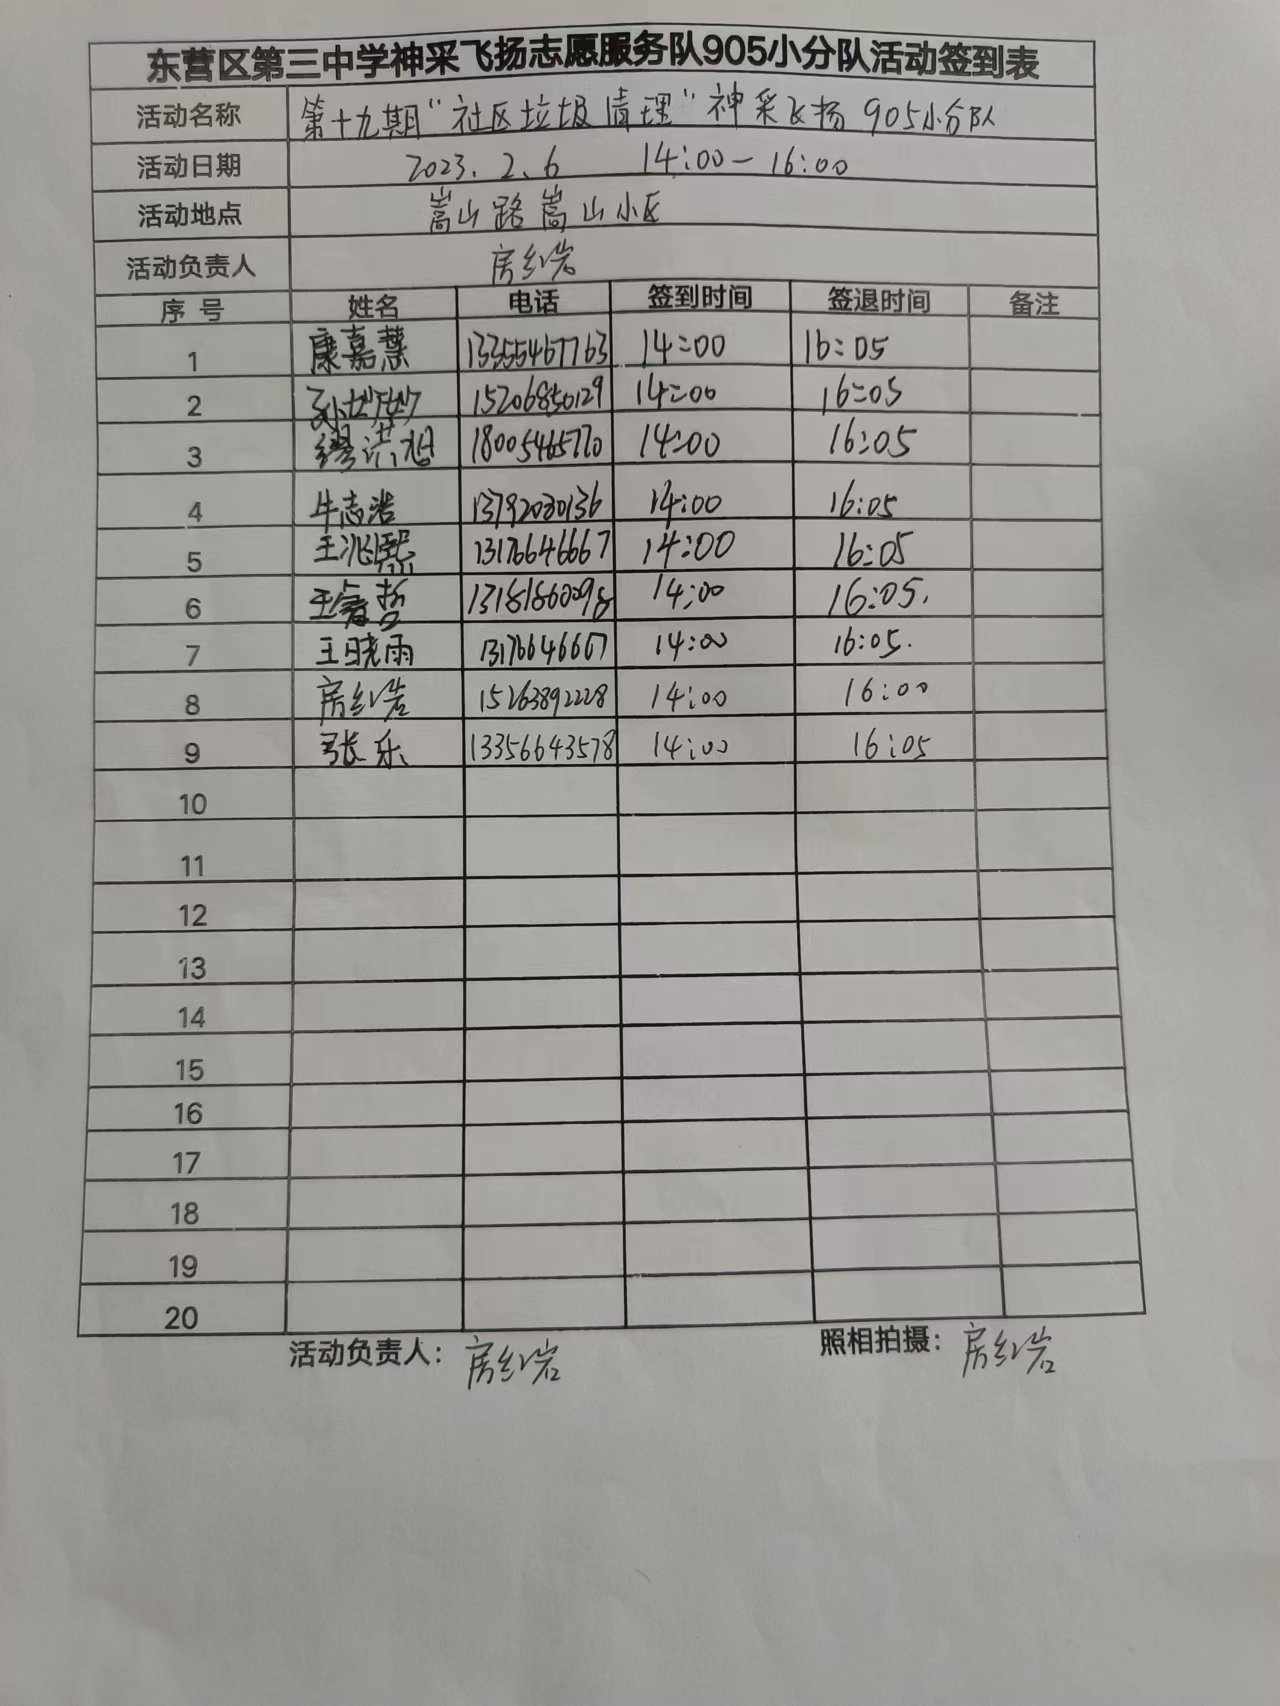 东营区第三中学神采飞扬志愿服务队905小分队活动签到表
活动名称 第十九期“社区垃圾清理”神采飞扬905小分队
活动日期 2023.2.6 14:00-16:00
活动地点 嵩山路嵩山小区
活动负责人 房红岩
序号 姓名 电话 签到时间 签退时间 备注
1 康嘉慧 13355467763 14:00 16:05
2 孙梦妙 15206850129 14:00 16:05
3 缪洪旭 18005465770 14:00 16:05
4 牛志浩 13792080136 14:00 16:05
5 王兆熙 13176646667 14:00 16:05
6 王睿哲 13181860098 14:00 16:05.
7 王晓雨 13176646667 14:00 16:05.
8 房红岩 15263892228 14:00 16:00
9 张乐 13356643578 14:00 16:05
10
11
12
13
14
15
16
17
18
19
20
活动负责人：房红岩 照相拍摄：房红岩